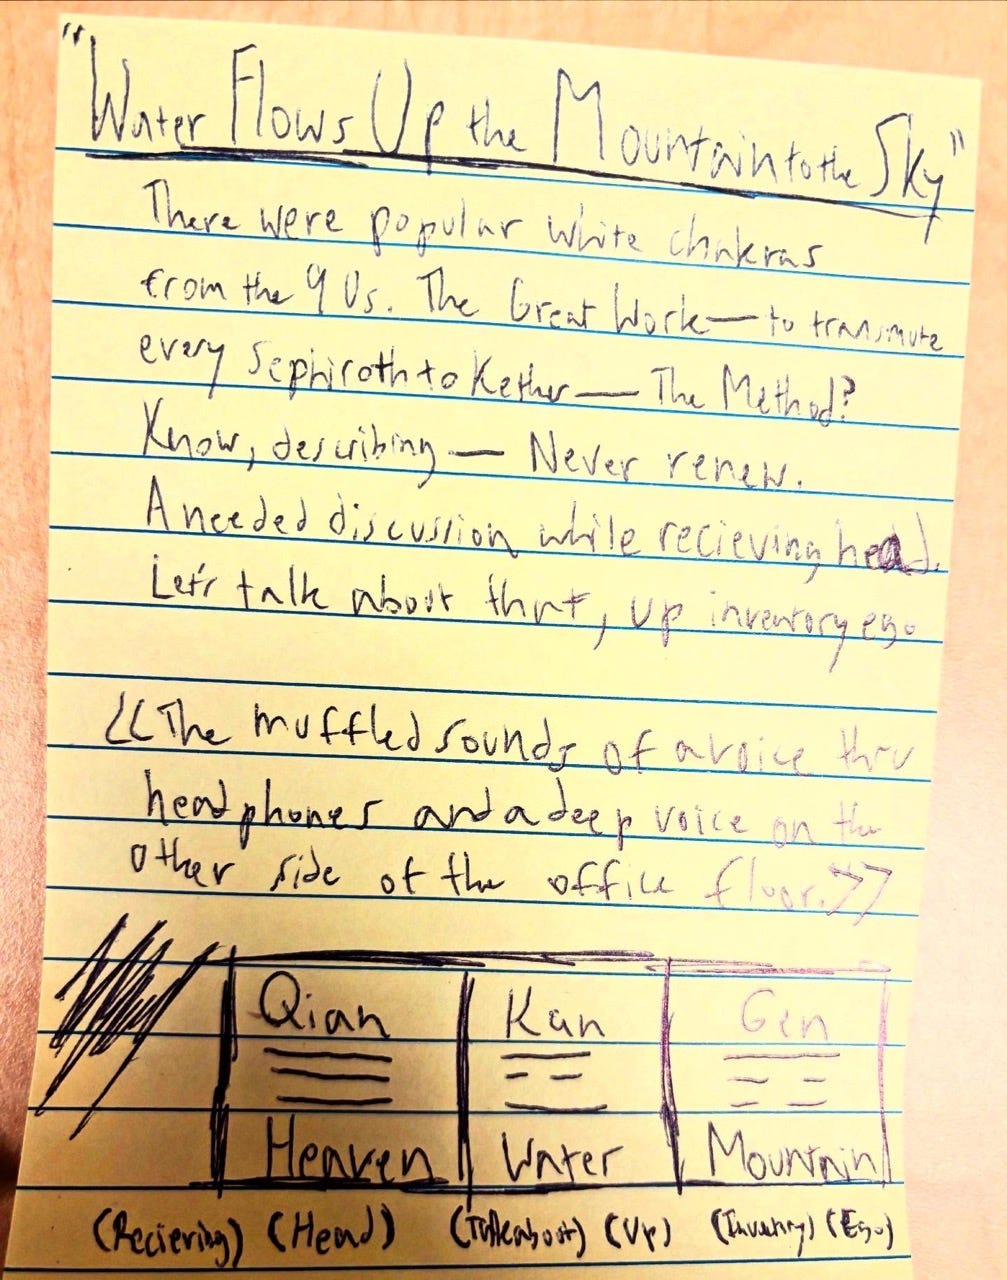 "Water Flows Up the Mountain to the Sky"
There were popular white chakras
from the 90s. The Great Work — to transmute
every Sephiroth to Kether — The Method?
Know, describing — Never renew.
A needed discussion while recieving head.
Let's talk about that, up inventory ego
<<The muffled sounds of a voice thru
headphones and a deep voice on the
other side of the office floor.>>
Qian Kan Gen
Heaven Water Mountain
(Recieving) (Head) (Talkabout) (Up) (Inventory) (Ego)